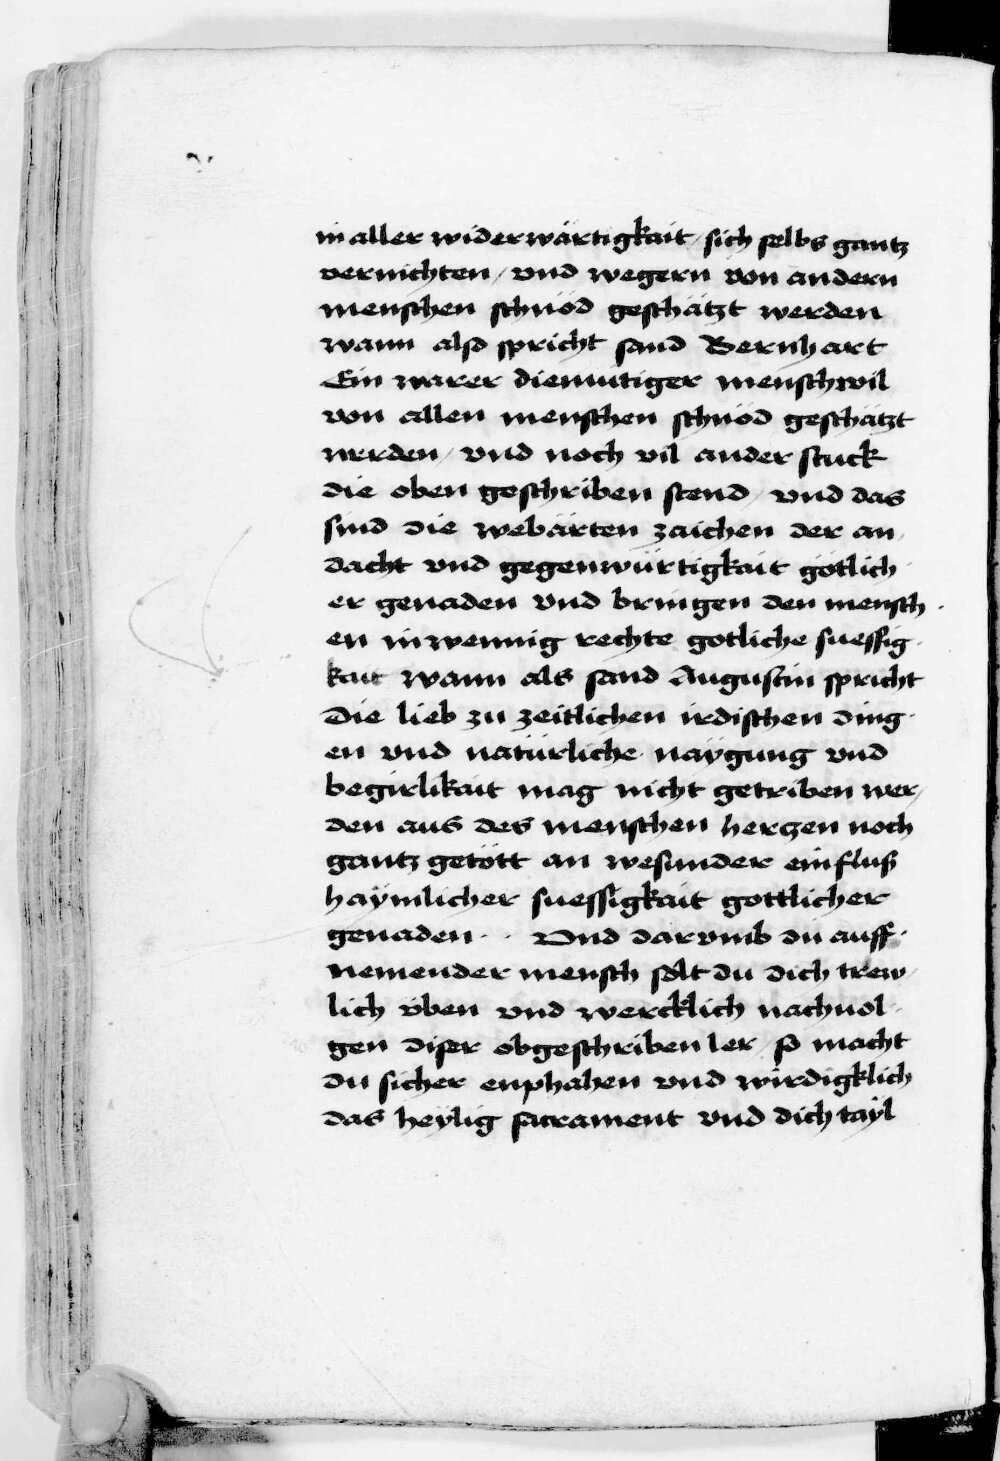 in aller widerwärtigkait / sich selbs gantz
vernichten / vnd wegern von andern
menschen schnöd geschätzt werden
wann also spricht sand Bernhart
Ein warer diemütiger mensch wil
von allen menschen schnöd geschätzt
werden / vnd noch vil ander stuck
die oben geschriben stend / vnd das
sind die webärten zaichen der an
dacht vnd gegenwürtigkait götlich
er genaden vnd bringen den mensch
en inwennig rechte gotliche suessig
kait wann als sand Augustin spricht
Die lieb zu zeitlichen irdischen ding
en vnd natürliche naÿgung vnd
begirlikait mag nicht getriben wer
den aus des menschen herczen noch
gantz getött an wesunder einfluß
haÿmlicher suessigkait gottlicher
genaden · · Vnd darvmb du auff
nemender mensch solt du dich trew
lich üben vnd wercklich nachuol
gen diser obgeschriben ler / so macht
du sicher enphahen vnd wirdigklich
das heÿlig sacrament vnd dich taÿl